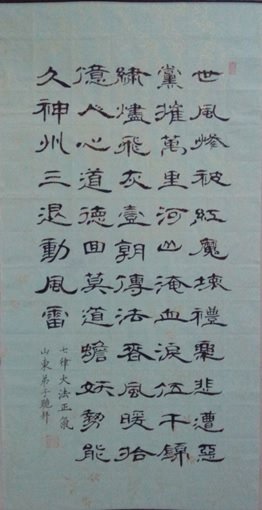 世風慘被紅魔壞禮樂悲遭惡
黨摧萬里河山淹血淚伍千錦
繡燼飛灰壹朝傳法春風暖拾
億人心道德回莫道蟾妖勢能
久神州三退動風雷
七律大法正氣
山東弟子拜